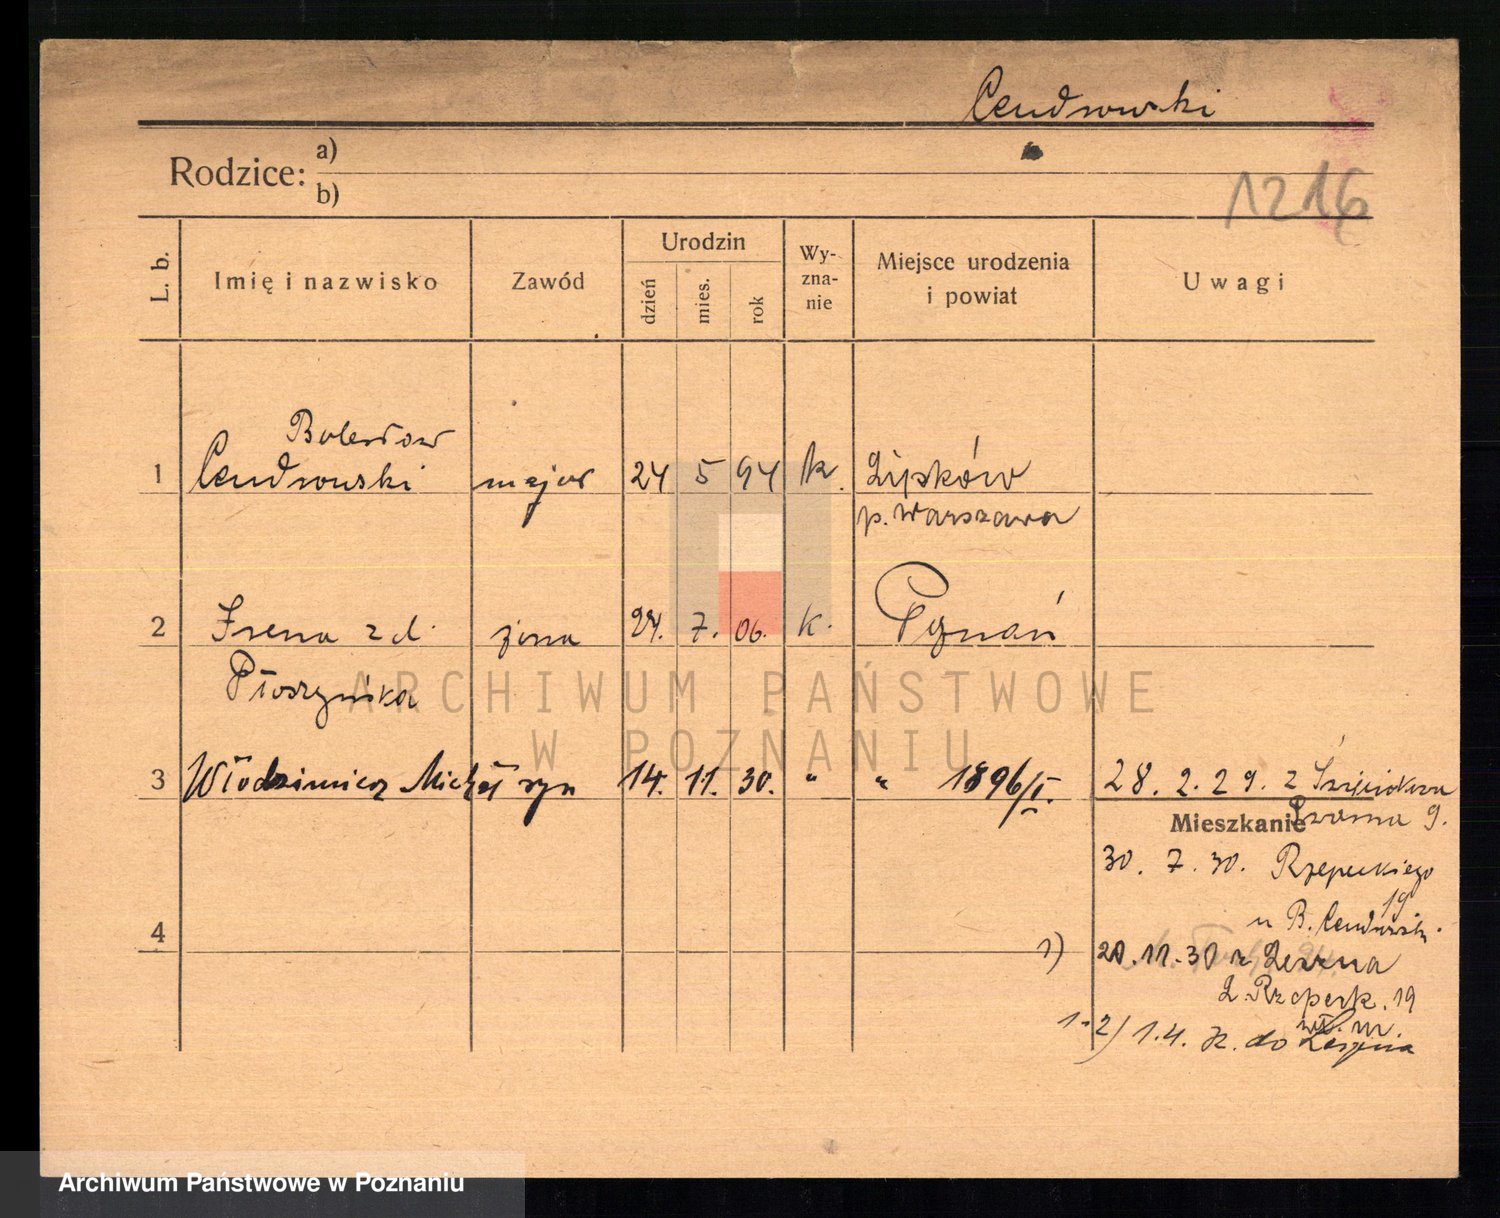 Cendrowski
Rodzice: a)
b)
1216
L. b.
Imię i nazwisko
Zawód
Urodzin
dzień
mies.
rok
Wy-
zna-
nie
Miejsce urodzenia
i powiat
Uwagi
Bolesław
1 Cendrowski major 24 5 94 k. Lipków
p. Warszawa
2 Irena z d. żona 24. 7. 06. k. Poznań
Płoszyńska
ARCHIWUM PAŃSTWOWE
W POZNANIU
3 Włodzimierz Michał syn 14. 11. 30. " " 1896/I. 28. 2. 29. z
Mieszkanie 9.
30. 7. 30. Rzepeckiego
19
u B. Cendrowski.
4
1) 20.11.30 z Leszna
19
wł. m.
1-2) 1.4. do Leszna
Archiwum Państwowe w Poznaniu